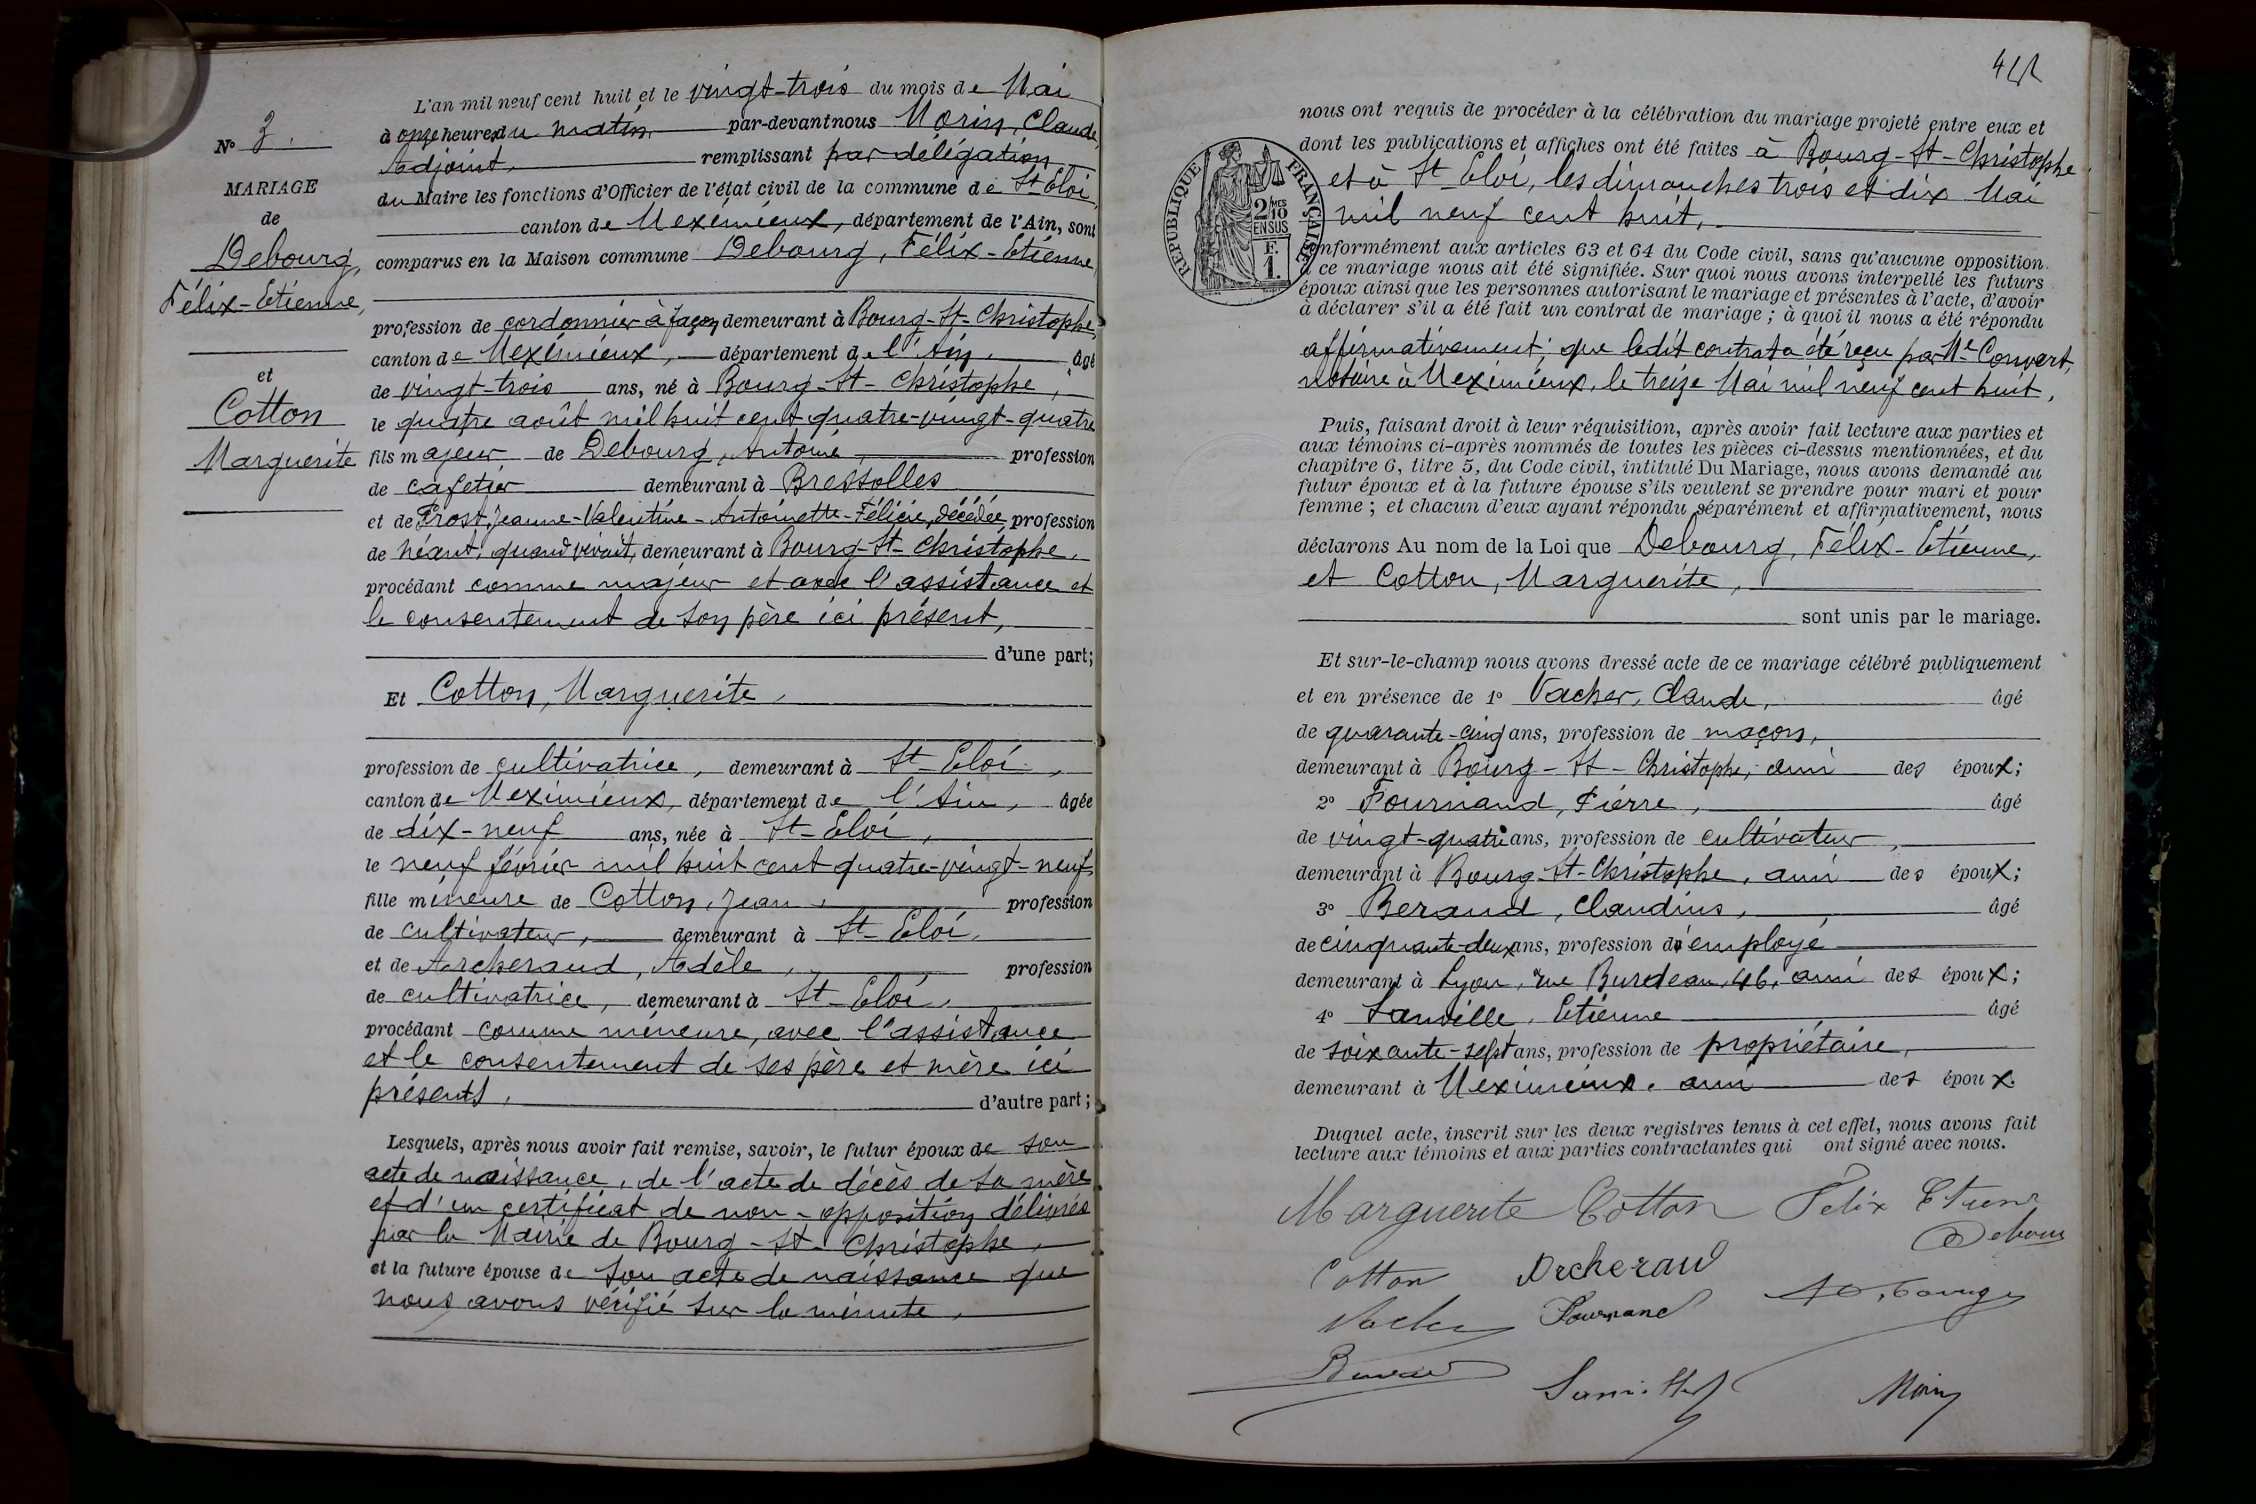 N° 3.
MARIAGE
de
Debourg,
Félix-Etienne,
et
Cotton
Marguerite
L'an mil neuf cent huit et le vingt-trois du mois de Mai
à onze heures du matin, par-devant nous Morin, Claude,
Adjoint, remplissant par délégation
du Maire les fonctions d'Officier de l'état civil de la commune de St-Eloi,
canton de Meximieux, département de l'Ain, sont
comparus en la Maison commune Debourg, Félix-Etienne,
profession de cordonnier à façon demeurant à Bourg-St-Christophe,
canton de Meximieux, département de l'Ain, âgé
de vingt-trois ans, né à Bourg-St-Christophe,
le quatre août mil huit cent quatre-vingt-quatre
fils majeur de Debourg, Antoine, profession
de cafetier demeurant à Bressolles
et de Prost, Jeanne-Valentine-Antoinette-Félicie, décédée, profession
de néant, quand vivait, demeurant à Bourg-St-Christophe,
procédant comme majeur et avec l'assistance et
le consentement de son père ici présent,
d'une part;
Et Cotton, Marguerite,
profession de cultivatrice, demeurant à St-Eloi,
canton de Meximieux, département de l'Ain, âgée
de dix-neuf ans, née à St-Eloi,
le neuf février mil huit cent quatre-vingt-neuf,
fille mineure de Cotton, Jean, profession
de cultivateur, demeurant à St-Eloi,
et de Archeraud, Adèle, profession
de cultivatrice, demeurant à St-Eloi,
procédant comme mineure, avec l'assistance
et le consentement de ses père et mère ici
présents, d'autre part;
Lesquels, après nous avoir fait remise, savoir, le futur époux de son
acte de naissance, de l'acte de décès de sa mère
et d'un certificat de non-opposition délivrés
par la Mairie de Bourg-St-Christophe,
et la future épouse de son acte de naissance que
nous avons vérifié sur la minute,
nous ont requis de procéder à la célébration du mariage projeté entre eux et
dont les publications et affiches ont été faites à Bourg-St-Christophe
et à St-Eloi, les dimanches trois et dix Mai
mil neuf cent huit,
RÉPUBLIQUE FRANÇAISE
2 MES
10
EN SUS
F.
1.
conformément aux articles 63 et 64 du Code civil, sans qu'aucune opposition
à ce mariage nous ait été signifiée. Sur quoi nous avons interpellé les futurs
époux ainsi que les personnes autorisant le mariage et présentes à l'acte, d'avoir
à déclarer s'il a été fait un contrat de mariage; à quoi il nous a été répondu
affirmativement; que ledit contrat a été reçu par Me Convert,
notaire à Meximieux, le treize Mai mil neuf cent huit.
Puis, faisant droit à leur réquisition, après avoir fait lecture aux parties et
aux témoins ci-après nommés de toutes les pièces ci-dessus mentionnées, et du
chapitre 6, titre 5, du Code civil, intitulé Du Mariage, nous avons demandé au
futur époux et à la future épouse s'ils veulent se prendre pour mari et pour
femme; et chacun d'eux ayant répondu séparément et affirmativement, nous
déclarons Au nom de la Loi que Debourg, Félix-Etienne,
et Cotton, Marguerite,
sont unis par le mariage.
Et sur-le-champ nous avons dressé acte de ce mariage célébré publiquement
et en présence de 1° Vacher, Claude, âgé
de quarante-cinq ans, profession de maçon,
demeurant à Bourg-St-Christophe, ami des époux;
2° Fournand, Pierre, âgé
de vingt-quatre ans, profession de cultivateur,
demeurant à Bourg-St-Christophe, ami des époux;
3° Beraud, Claudius, âgé
de cinquante-deux ans, profession d'employé
demeurant à Lyon, rue Burdeau, 46, ami des époux;
4° Sanville, Etienne âgé
de soixante-sept ans, profession de propriétaire,
demeurant à Meximieux, ami des époux.
Duquel acte, inscrit sur les deux registres tenus à cet effet, nous avons fait
lecture aux témoins et aux parties contractantes qui ont signé avec nous.
Marguerite Cotton Felix Etienne
Debourg
Cotton Archeraud
Vacher Fournand
Beraud
Morin